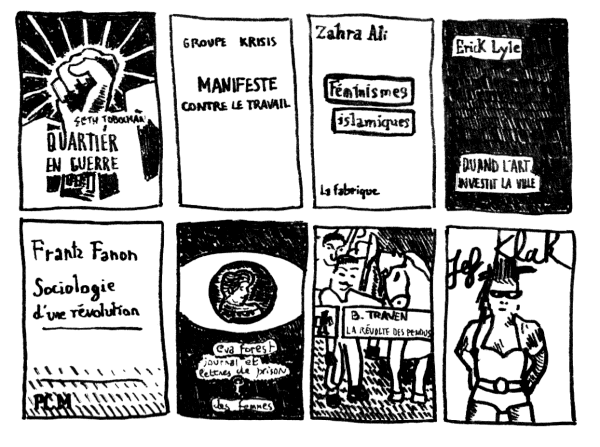 SETH TOBOCMAN
QUARTIER
EN GUERRE
GROUPE KRISIS
MANIFESTE
CONTRE LE TRAVAIL
Zahra Ali
Féminismes
islamiques
La fabrique
Erick Lyle
QUAND L'ART
INVESTIT LA VILLE
Frantz Fanon
Sociologie
d'une révolution
PCM
eva forest
journal et
lettres de prison
des femmes
B. TRAVEN
LA RÉVOLTE DES PENDUS
Jef Klak